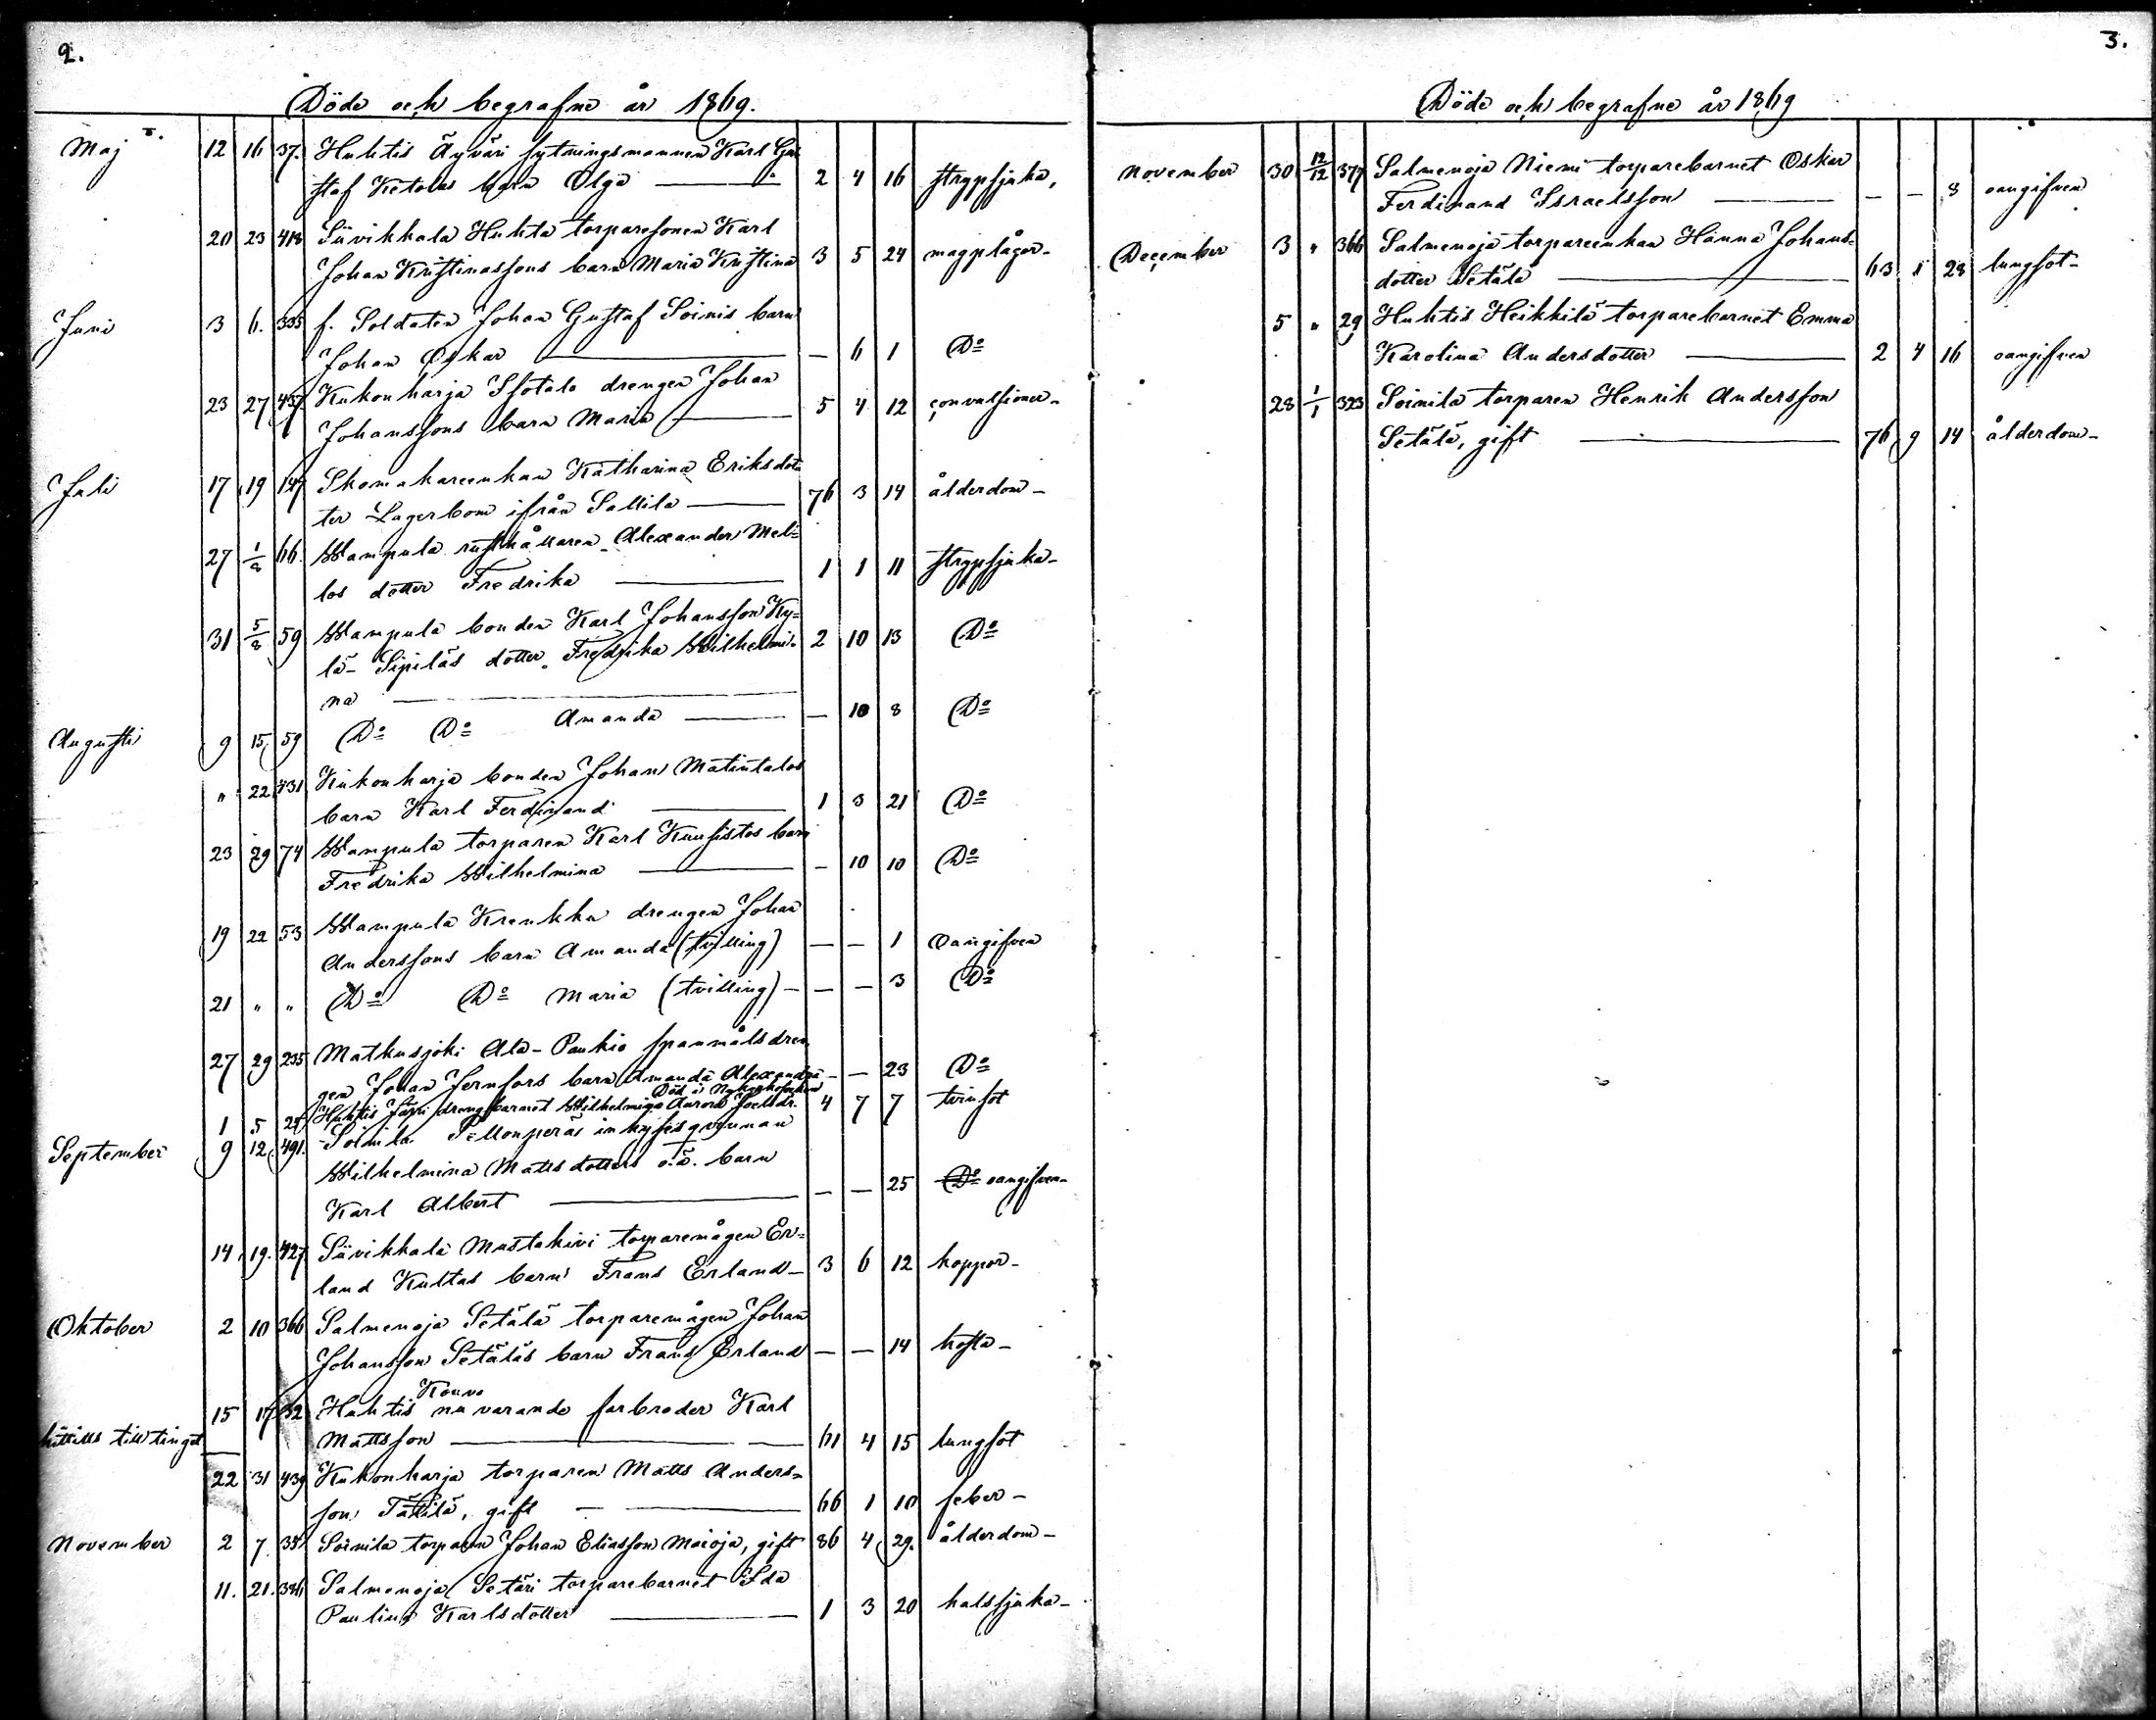 2.
Döde och begrafne år 1869.
Maj 12 16 37. Huhtis Äyväri sytningsmannen Karl Gu
staf Ketolas barn Olga — 2 4 16 strypsjuka,
20 23 418 Siivikkala Huhta torparesonen Karl
Johan Kristinassons barn Maria Kristina 3 5 24 magplågor-
Juni 3 6. 335 f. Soldaten Johan Gustaf Soinis barn
Johan Oskar — — 6 1 Do
23 27 457 Kukonharja Isotalo drengen Johan
Johanssons barn Maria — 5 4 12 convulsioner-
Juli 17 19 147 Skomakareenkan Katharina Eriksdot
ter Lagerbom ifrån Sallila — 76 3 14 ålderdom-
27 1/8 66. Wampula rusthållaren Alexander Meli=
los dotter Fredrika — 1 1 11 strypsjuka-
31 5/8 59 Wampula bonden Karl Johansson Ky=
lä-Sipiläs dotter Fredrika Wilhelmi- 2 10 13 Do
na —
Augusti 9 15 59 Do Do Amanda — — 10 8 Do
" 22 431 Kukonharja bonden Johan Matintalos
barn Karl Ferdinand — 1 3 21 Do
23 29 74 Wampula torparen Karl Kuusistos barn
Fredrika Wilhelmina — — 10 10 Do
19 22 53 Wampula Krenkku drengen Johan
Anderssons barn Amanda (tvilling) — — 1 Oangifven
21 " " Do Do Maria (tvilling) — — — 3 Do
27 29 235 Matkusjoki Ala-Paukio spanmålsdren
gen Johan Jernfors barn Amanda Alexandra — — 23 Do
Död i
1 5 29 Huhtis Järvi drengbarnet Wilhelmina Aurora Joelsdr. 4 7 7 tvinsot
September 9 12 491. Soinila Pellonperäs inhysesqvinnan
Wilhelmina Mattsdotters o.ä. barn
Karl Albert — — — 25 Do oangifven-
14 19. 427 Siivikkala Mustakivi torparemågen Er=
land Kultas barn Frans Erland- 3 6 12 koppor-
Oktober 2 10 366 Salmenoja Setälä torparemågen Johan
Johansson Setäläs barn Frans Erland — — 14 hosta-
Kouvo
15 17 32 Huhtis nu varande farbroder Karl
hittills till tinget Mattsson — 61 4 15 lungsot
22 31 439 Kukonharja torparen Matts Anders=
son Tällilä, gift — 66 1 10 feber-
November 2 7. Soinila torparen Johan Eliasson Maioja, gift 86 4 29. ålderdom-
11. 21. 386 Salmenoja Setäri torparebarnet Ida
Paulina Karlsdotter — 1 3 20 halssjuka-
3.
Döde och begrafne år 1869
November 30 12/12 377 Salmenoja Niemi torparebarnet Oskar
Ferdinand Israelsson — — — 8 oangifven
December 3 " 366 Salmenoja torpareenkan Hanna Johans=
dotter Setälä — 63 1 28 lungsot-
5 " 29 Huhtis Heikkilä torparebarnet Emma
Karolina Andersdotter — 2 4 16 oangifven
28 1/1 323 Soinila torparen Henrik Andersson
Setälä, gift — 76 9 14 ålderdom-